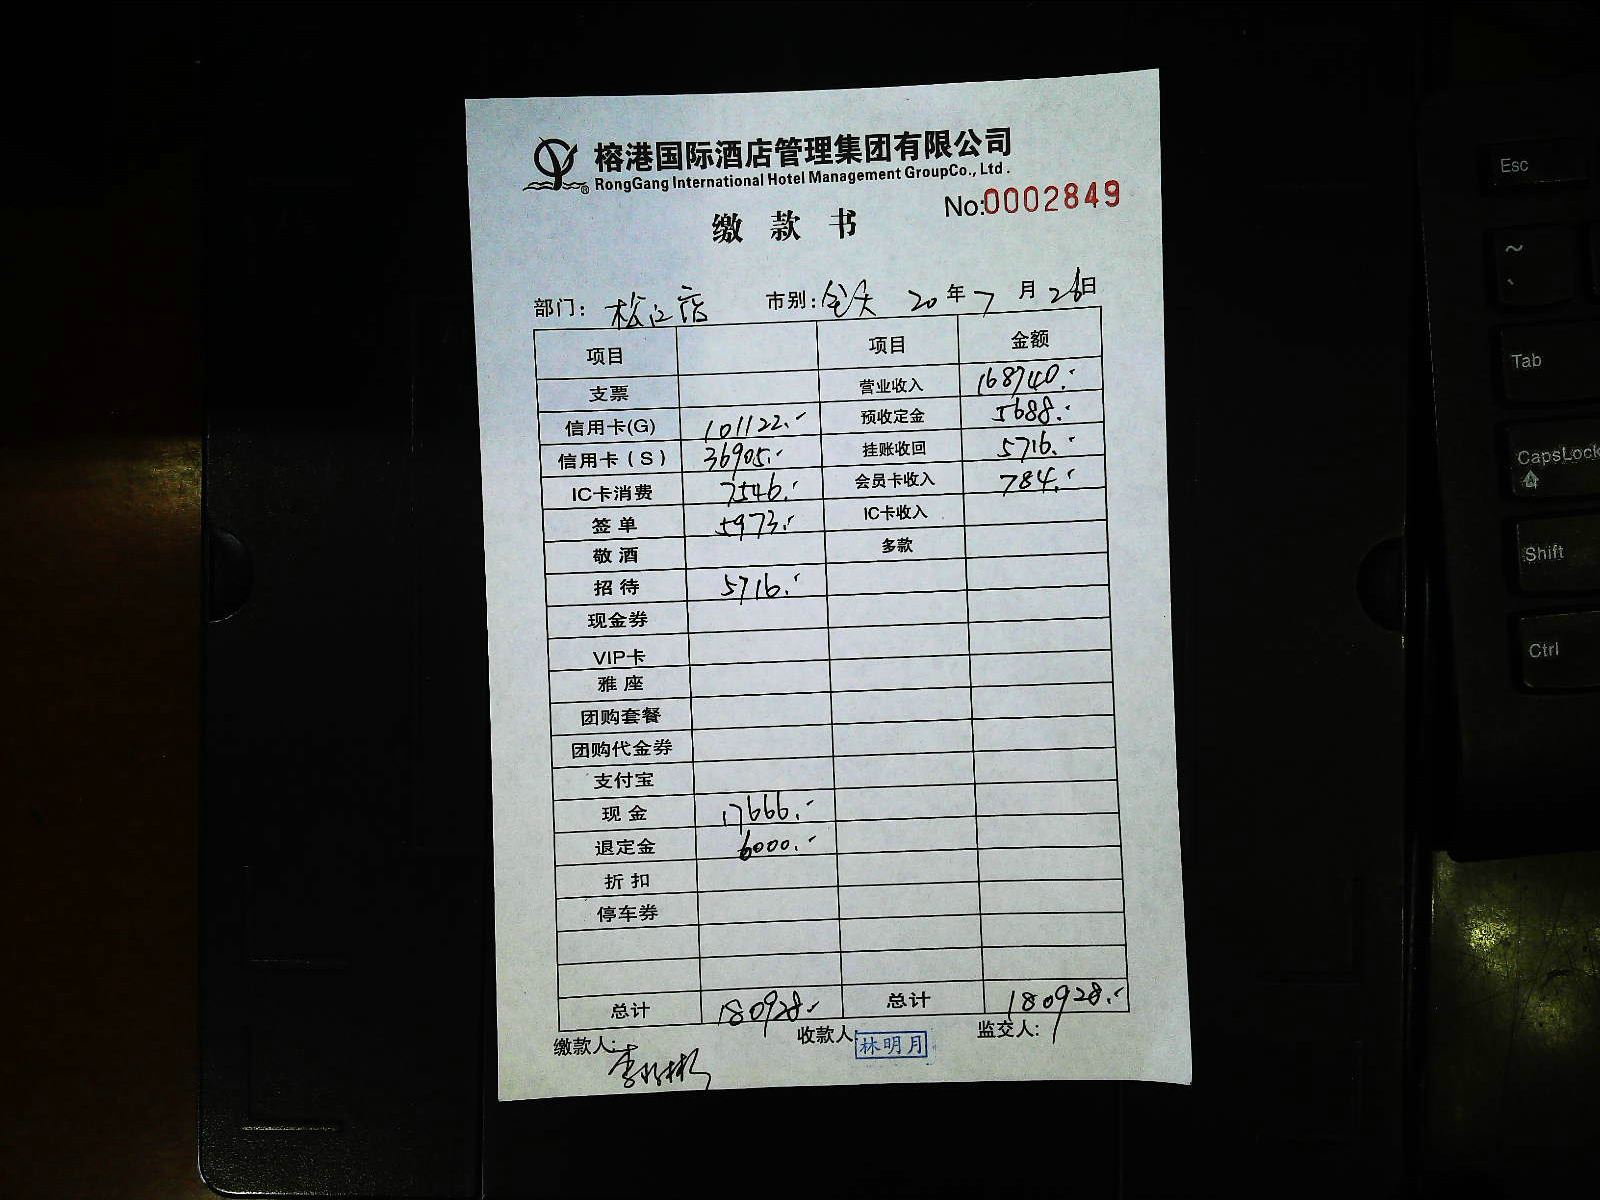 榕港国际酒店管理集团有限公司
RongGang International Hotel Management GroupCo., Ltd.
No:0002849
缴款书
部门: 松江店 市别: 全天 20年7月26日
项目 项目 金额
支票 营业收入 168740.-
信用卡(G) 101122.- 预收定金 5688.-
信用卡(S) 36905.- 挂账收回 5716.-
IC卡消费 7546.- 会员卡收入 784.-
签单 5973.- IC卡收入
敬酒 多款
招待 5716.-
现金券
VIP卡
雅座
团购套餐
团购代金券
支付宝
现金 17666.-
退定金 6000.-
折扣
停车券
总计 180928.- 总计 180928.-
缴款人: 收款人: 林明月 监交人:
Esc
~
Tab
CapsLock
Shift
Ctrl